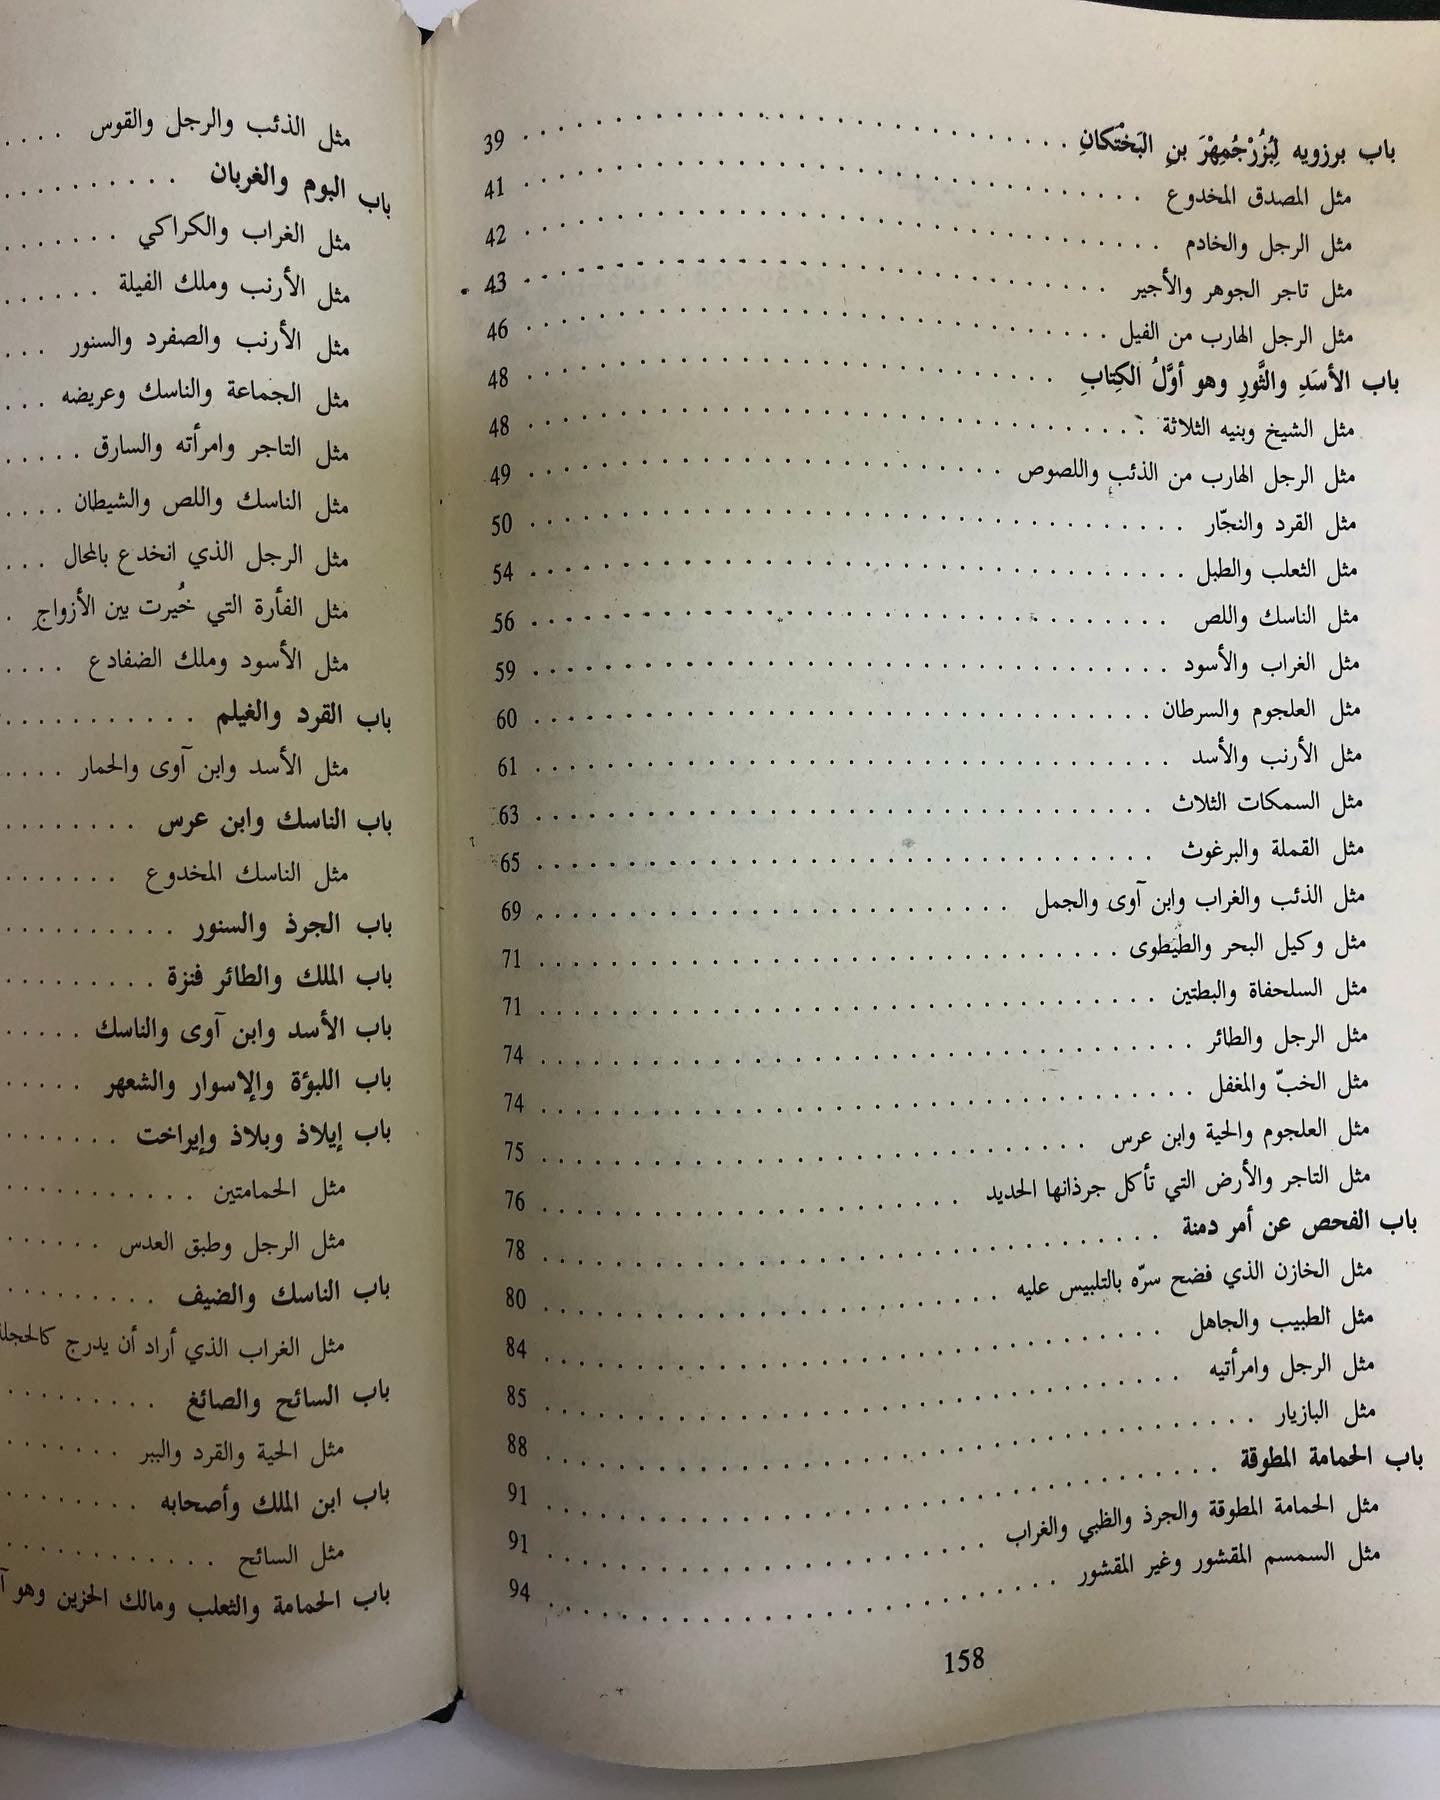 باب برزويه لِبُزُرْجُمِهْرَ بنِ البَخْتَكانِ . . . . . 39
مثل المصدق المخدوع . . . . . 41
مثل الرجل والخادم . . . . . 42
مثل تاجر الجوهر والأجير . . . . . 43
مثل الرجل الهارب من الفيل . . . . . 46
باب الأسَدِ والثَّورِ وهو أوَّلُ الكِتابِ . . . . . 48
مثل الشيخ وبنيه الثلاثة . . . . . 48
مثل الرجل الهارب من الذئب واللصوص . . . . . 49
مثل القرد والنجّار . . . . . 50
مثل الثعلب والطبل . . . . . 54
مثل الناسك واللص . . . . . 56
مثل الغراب والأسود . . . . . 59
مثل العلجوم والسرطان . . . . . 60
مثل الأرنب والأسد . . . . . 61
مثل السمكات الثلاث . . . . . 63
مثل القملة والبرغوث . . . . . 65
مثل الذئب والغراب وابن آوى والجمل . . . . . 69
مثل وكيل البحر والطيطوى . . . . . 71
مثل السلحفاة والبطتين . . . . . 71
مثل الرجل والطائر . . . . . 74
مثل الخبّ والمغفل . . . . . 74
مثل العلجوم والحية وابن عرس . . . . . 75
مثل التاجر والأرض التي تأكل جرذانها الحديد . . . . . 76
باب الفحص عن أمر دمنة . . . . . 78
مثل الخازن الذي فضح سرّه بالتلبيس عليه . . . . . 80
مثل الطبيب والجاهل . . . . . 84
مثل الرجل وامرأتيه . . . . . 85
مثل البازيار . . . . . 88
باب الحمامة المطوقة . . . . . 91
مثل الحمامة المطوقة والجرذ والظبي والغراب . . . . . 91
مثل السمسم المقشور وغير المقشور . . . . . 94
158
مثل الذئب والرجل والقوس . . . .
باب البوم والغربان . . . . .
مثل الغراب والكراكي . . . . .
مثل الأرنب وملك الفيلة . . . . .
مثل الأرنب والصفرد والسنور . . .
مثل الجماعة والناسك وعريضه . . .
مثل التاجر وامرأته والسارق . . . . .
مثل الناسك واللص والشيطان . . . .
مثل الرجل الذي انخدع بالمحال . . .
مثل الفأرة التي خُيرت بين الأزواجِ .
مثل الأسود وملك الضفادع . . . .
باب القرد والغيلم . . . . .
مثل الأسد وابن آوى والحمار . . . .
باب الناسك وابن عرس . . . . .
مثل الناسك المخدوع . . . . .
باب الجرذ والسنور . . . . .
باب الملك والطائر فنزة . . . . .
باب الأسد وابن آوى والناسك . . . . .
باب اللبؤة والإسوار والشعهر . . . . .
باب إيلاذ وبلاذ وإيراخت . . . . .
مثل الحمامتين . . . . .
مثل الرجل وطبق العدس . . . . .
باب الناسك والضيف . . . . .
مثل الغراب الذي أراد أن يدرج كالحجلة
باب السائح والصائغ . . . . .
مثل الحية والقرد والببر . . . . .
باب ابن الملك وأصحابه . . . . .
مثل السائح . . . . .
باب الحمامة والثعلب ومالك الحزين وهو